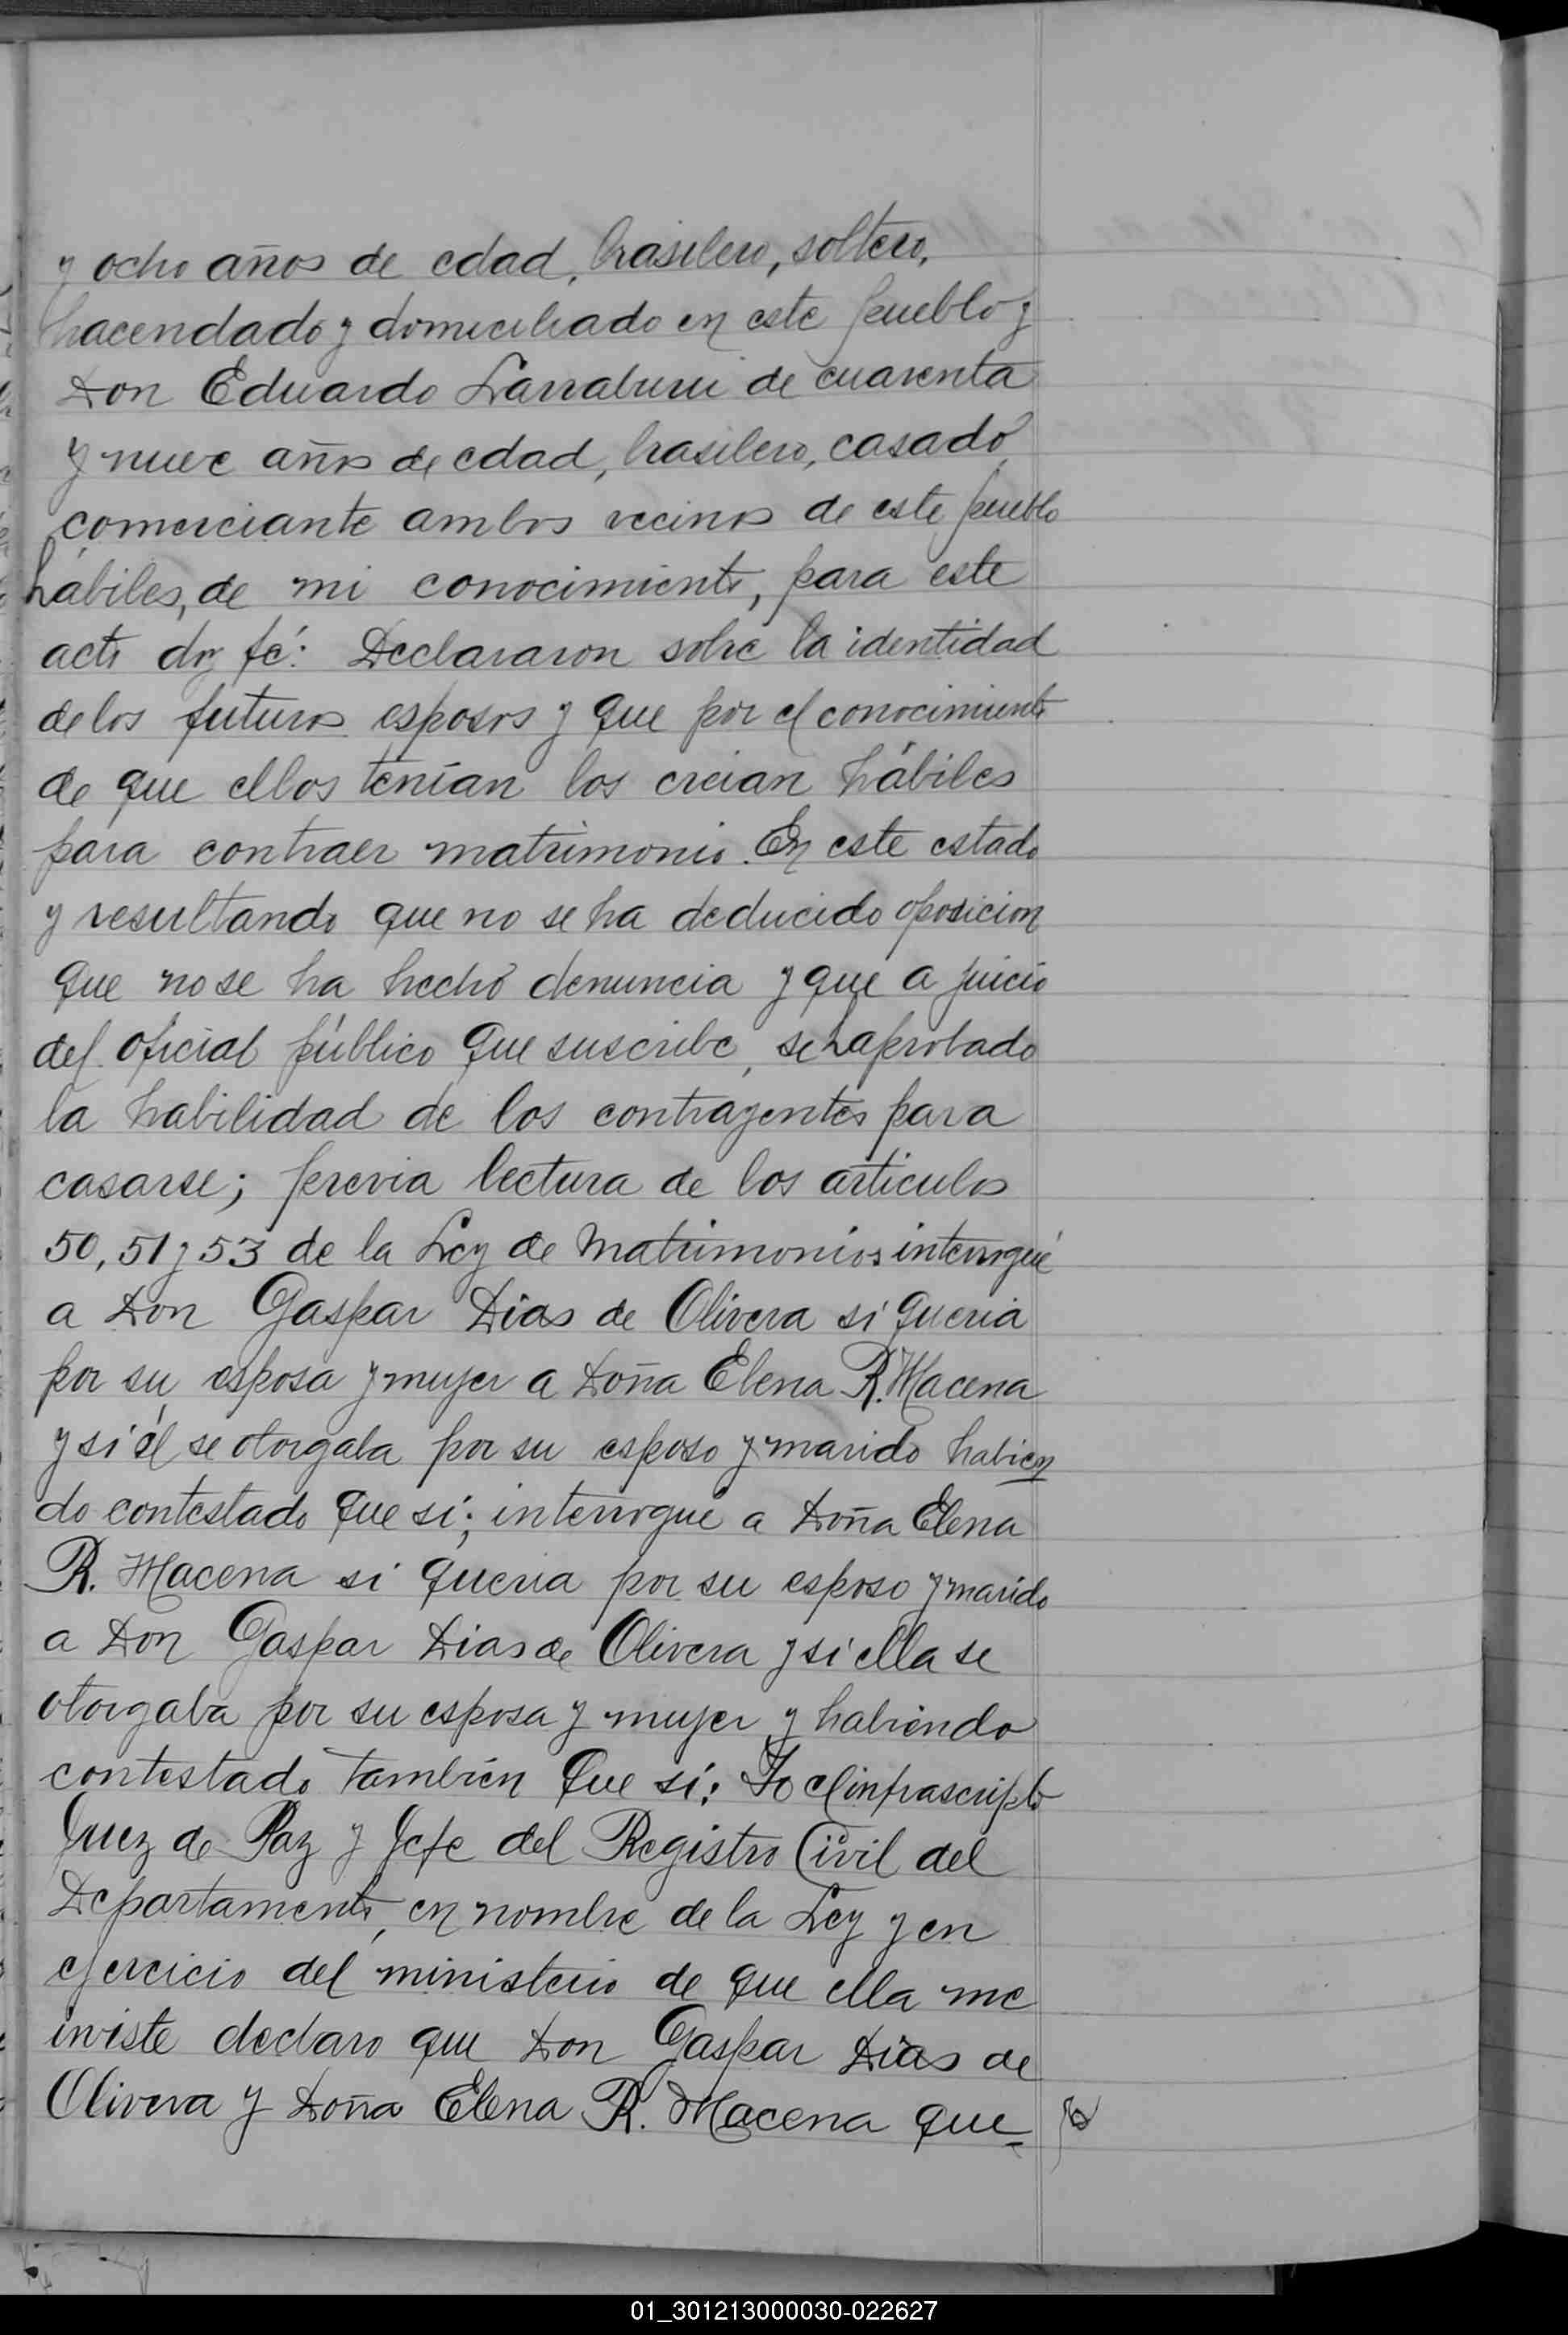 y ocho años de edad, brasilero, soltero,
hacendado y domiciliado en este pueblo y
Don Eduardo Larraburu de cuarenta
y nueve años de edad, brasilero, casado
comerciante ambos vecinos de este pueblo
hábiles, de mi conocimiento, para este
acto doy fé: Declararon sobre la identidad
de los futuros esposos y que por el conocimiento
de que ellos tenían los creian hábiles
para contraer matrimonio. En este estado
y resultando que no se ha deducido oposicion
que no se ha hecho denuncia y que a juicio
del oficial público que suscribe, se ha probado
la habilidad de los contrayentes para
casarse; previa lectura de los articulos
50, 51 y 53 de la Ley de Matrimonios interrogué
a Don Gaspar Dias de Olivera si queria
por su esposa y mujer a Doña Elena R. Macena
y si él se otorgaba por su esposo y marido habien
do contestado que si; interrogué a Doña Elena
R. Macena si queria por su esposo y marido
a Don Gaspar Dias de Olivera y si ella se
otorgaba por su esposa y mujer y habiendo
contestado también que sí: Yo el infrascripto
Juez de Paz y Jefe del Registro Civil del
Departamento, en nombre de la Ley y en
ejercicio del ministerio de que ella me
inviste declaro que Don Gaspar Dias de
Olivera y Doña Elena R. Macena que-
01_301213000030-022627